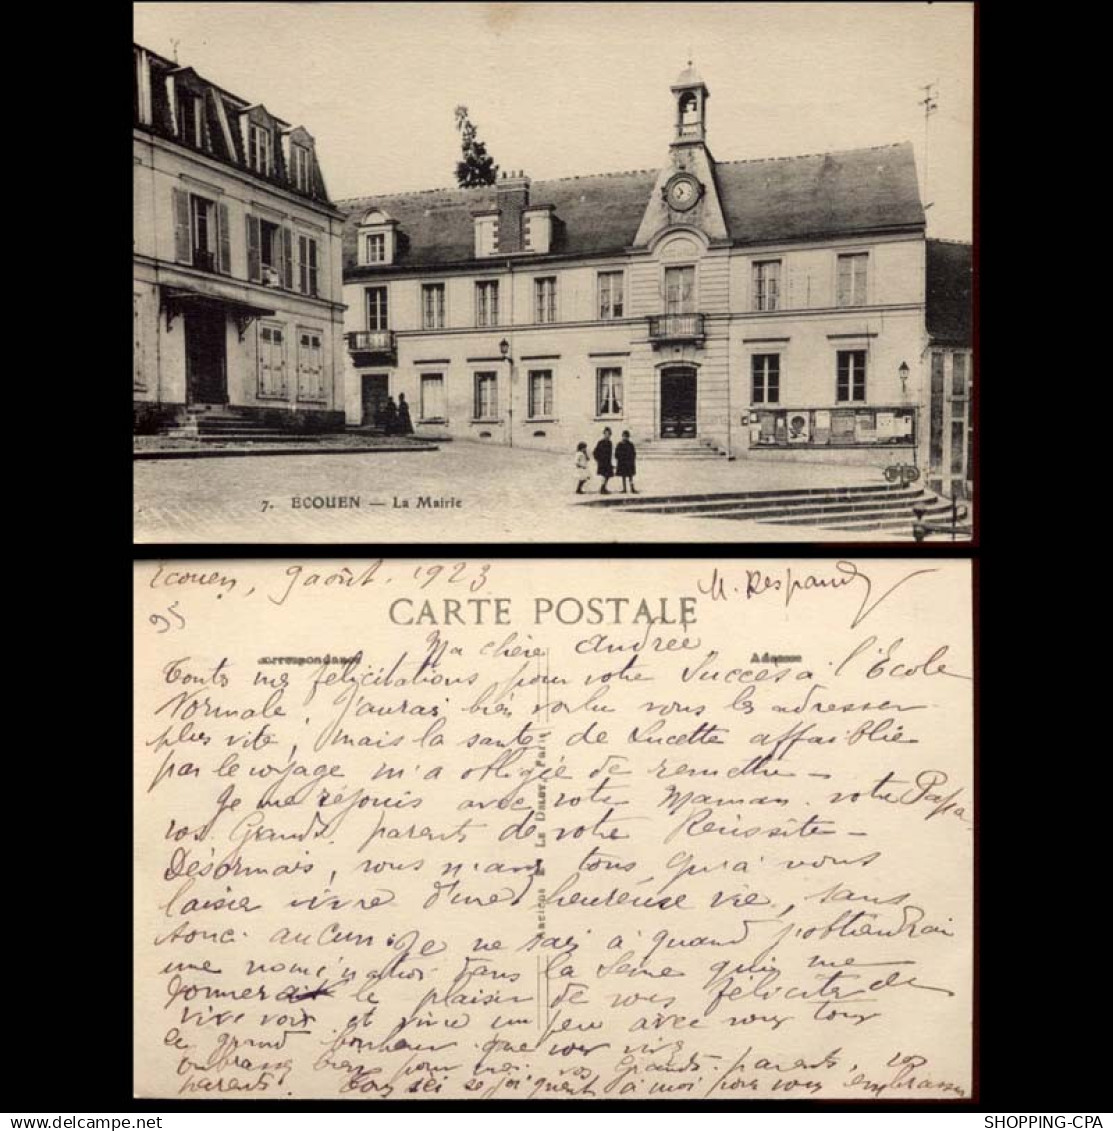 7. ECOUEN — La Mairie
ELD
Ecouen, 9 août. 1923
M. Respaud
95
CARTE POSTALE
Ma chère Andrée,
Correspondance
Adresse
Toutes mes félicitations pour votre Succès à l'Ecole
Normale, J'aurai bien voulu vous les adresser
plus vite, mais la santé de Lucette affaiblie
par le voyage m'a obligée de remettre –
Je me réjouis avec votre Maman. votre Papa
vos Grands. parents de votre Réussite –
Désormais, vous n'avez tous, qu'à vous
laisser vivre d'une heureuse vie, sans
souci aucun. Je ne sais à quand j'obtiendrai
une nomination dans la Seine qui me
donnera le plaisir de vous féliciter de
vive voix et vivre un peu avec vous tous
le grand bonheur que vous
Embrassez bien pour moi, vos Grands-parents, vos
parents. se joignent à moi pour vous embrasser
Anciens Et. Le Deley, Paris
SHOPPING-CPA